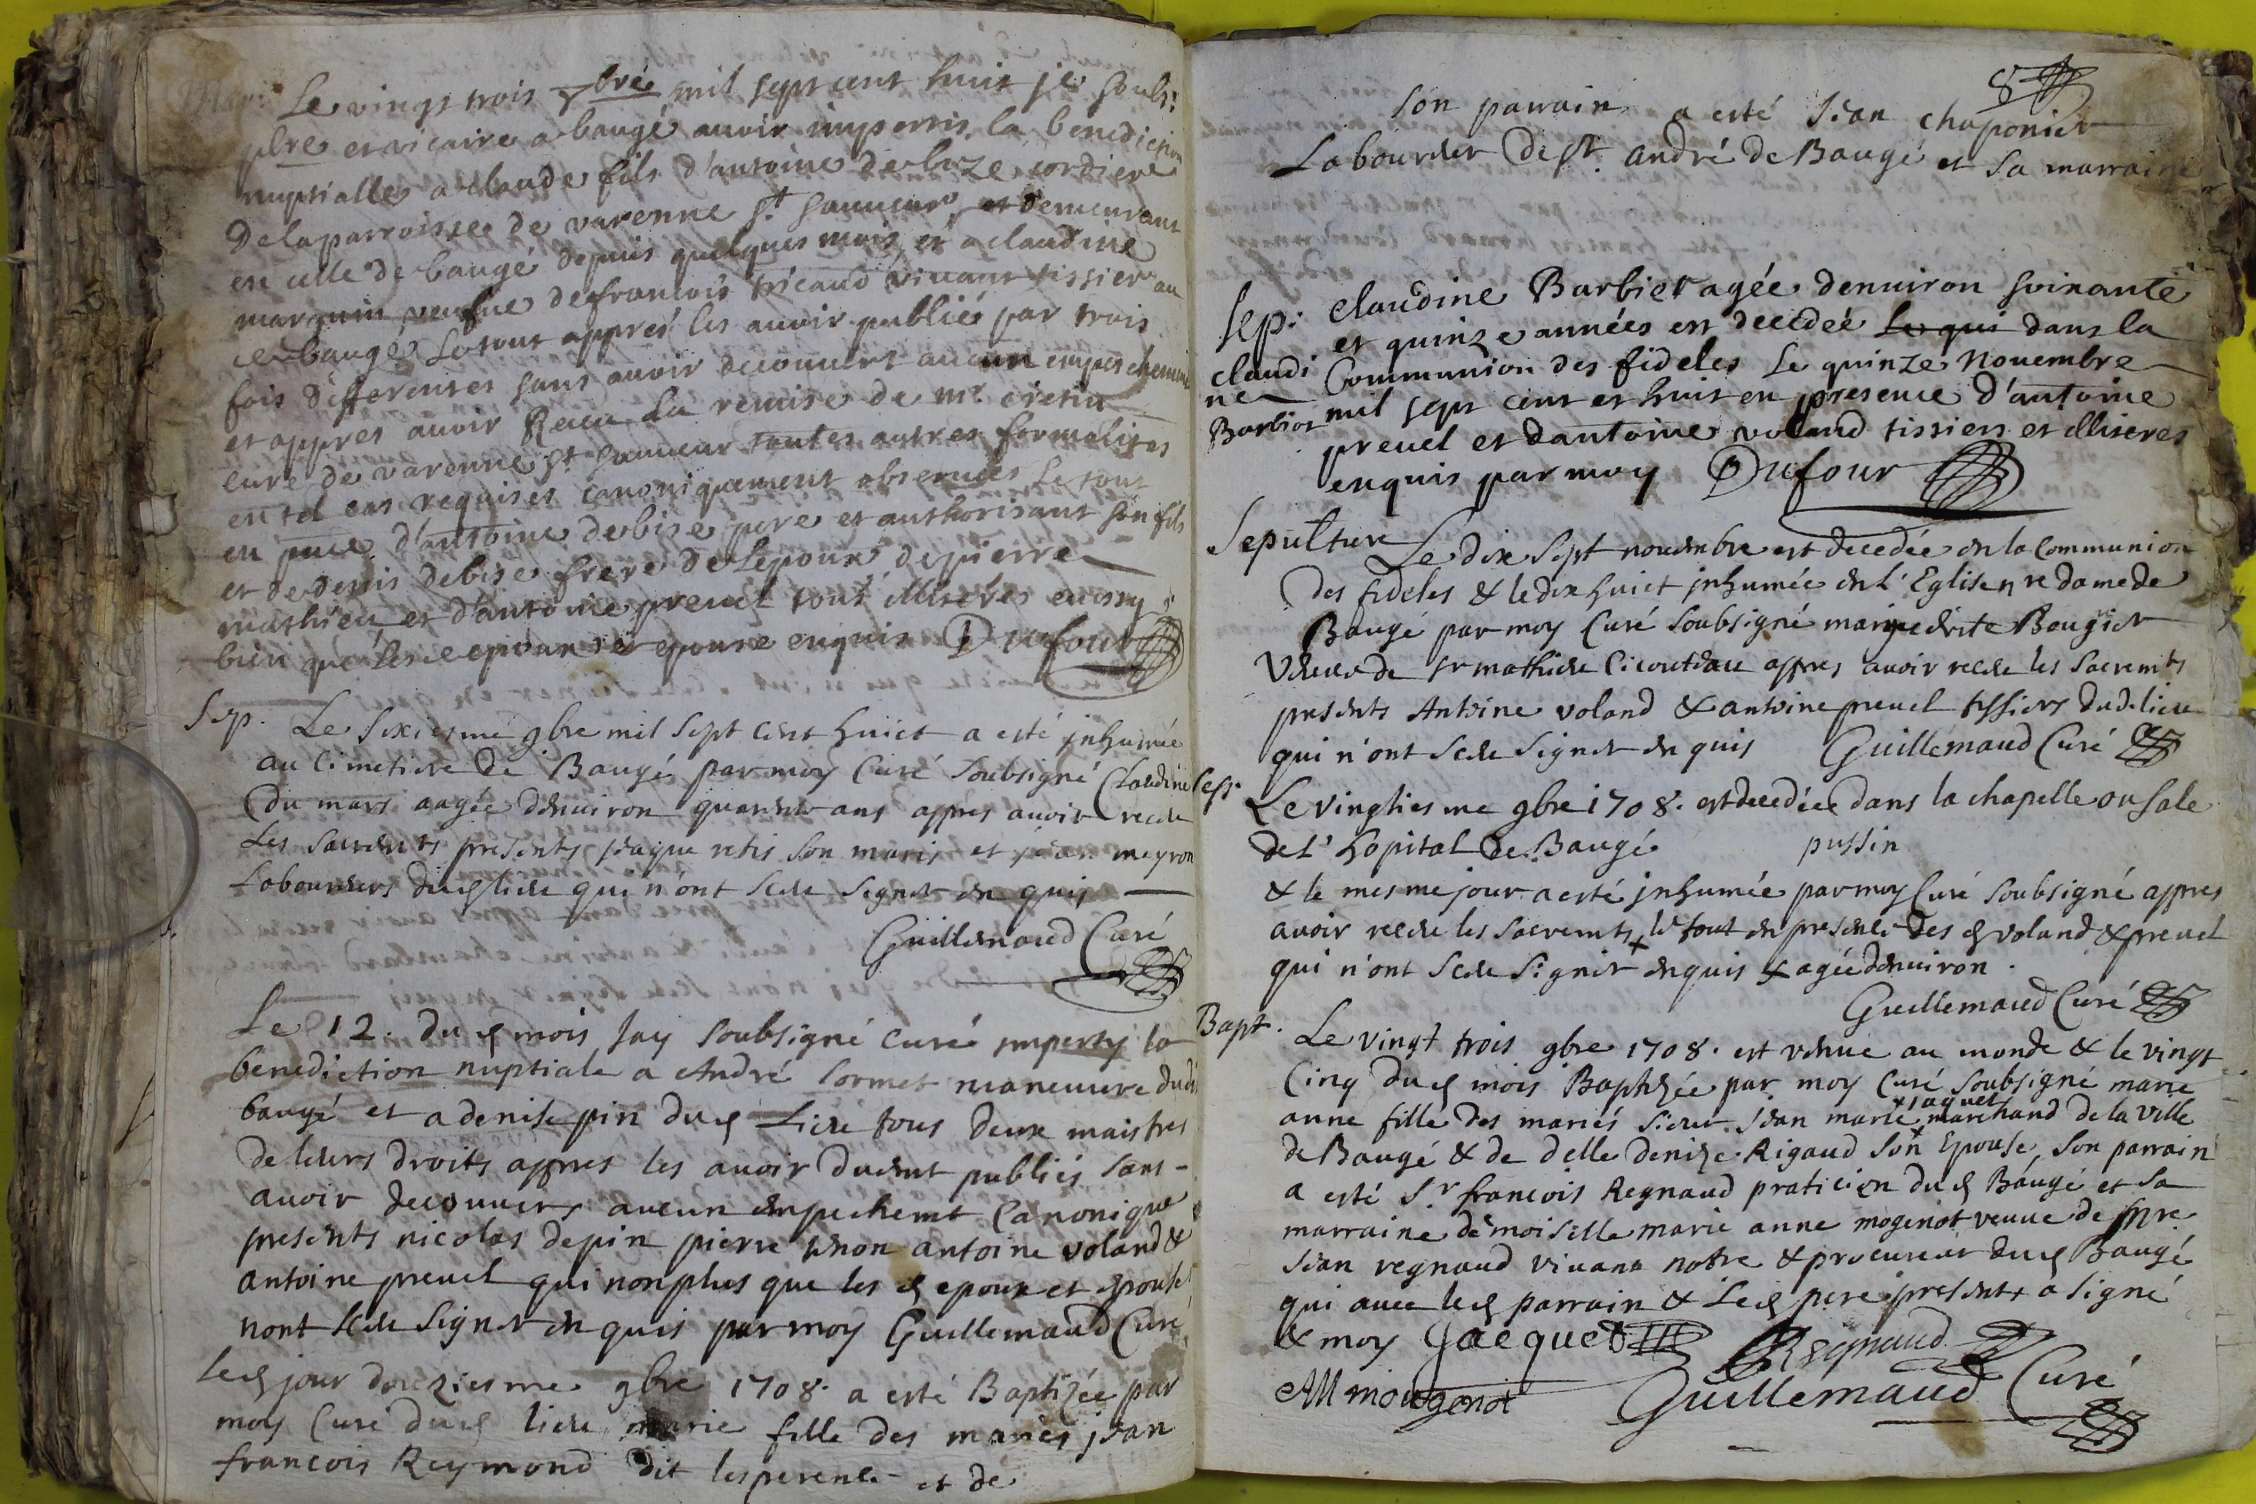 Mar:
Le vingt trois 7bre mil sept cent huit je soubs:
pbre et vicaire a baugé avoir imperris la benediction
nuptialles a claude fils d'antoine cordier
de la parroisse de varenne st sauveur et demeurant
en celle de baugé depuis quelques mois et a claudine
marquin veufve de francois tricaud vivant tissier au
baugé Le tout appres les avoir publié par trois
fois differentes sans avoir decouvert aucun empeschement
et appres avoir Receu La remise de mr cretin
curé de varenne st sauveur toutes autres formalites
en tel cas requises canoniquement observées Le tout
en pnce d'antoine debise pere et authorisant son fils
et de denis debise frere de Lepoux de pierre
mathieu et d'antoine prevel tous illiteres aussy
bien que les epoux et epouse enquis Dufour
Sep.
Le sixiesme 9bre mil sept cent huict a esté jnhumée
au cimetiere de Baugé par moy Curé Soubsigné Claudine
du mars aagée denviron quarente ans appres avoir receu
Les sacremts presents jaque retis son maris et jean meyron
Laboureurs dud lieu qui n'ont sceu signer en quis
Guillemaud Curé
Le 12. dud mois jay soubsigné curé jmperty la
benediction nuptiale a André Cormet maneuvre dud
baugé et a denise pin dud Lieu tous deux maistres
de leurs droits appres les avoir duemt publiés sans
avoir decouvers aucun empechemt Canonique
presents nicolas depin pierre antoine voland &
antoine prevel qui non plus que les d epoux et epouse
nont sceu signer en quis par moy Guillemaud Curé
Led jour douziesme 9bre 1708. a esté Baptizée par
moy Curé dud lieu marie fille des mariés jean
francois Reymond dit lesperence et de
8
son parrain a esté Jean chaponier
Laboureur de st. andré de Baugé et sa marraine
Sep: claudi ne Barbier
claudine Barbier agée denviron soixante
et quinze années est decedée Le qui dans la
Communion des fideles Le quinze Novembre
mil sept cent et huit en presence d'antoine
prevel et dantoine voland tissiers et illiteres
enquis par moy Dufour
Sepulture
Le dix sept novembre est decedée en la Communion
des fideles & le dix huict jnhumée en L'Eglise nre dame de
Baugé par moy Curé soubsigné marguerite Bougier
Veuve de sr mathieu Cicouteau appres avoir receu les sacremts
presents Antoine voland & antoine prevel tissiers dud lieu
qui n'ont sceu signer en quis Guillemaud Curé
Sep.
Le vingtiesme 9bre 1708. est decedée dans la chapelle ou sale
de L'hopital de Baugé pussin
& le mesme jour a esté jnhumée par moy Curé soubsigné appres
avoir receu les sacremts le tout en presence des d voland & prevel
qui n'ont sceu signer + enquis + agée denviron .
Guillemaud Curé
Bapt.
Le vingt trois 9bre 1708. est venue au monde & le vingt
Cinq dud mois Baptizée par moy Curé soubsigné marie
anne fille des mariés sieur Jean marie + marchand de la ville
+ jaquet
de Baugé & de delle denize Rigaud son Epouse, son parrain
a esté Sr francois Regnaud praticien dud Baugé et sa
marraine demoiselle marie anne mogenot veuve de
Jean regnaud vivant notre & procureur dud Baugé
qui avec led parrain & Led pere presents a signé
& moy Jacquet Regnaud
AM mougenot Guillemaud Curé